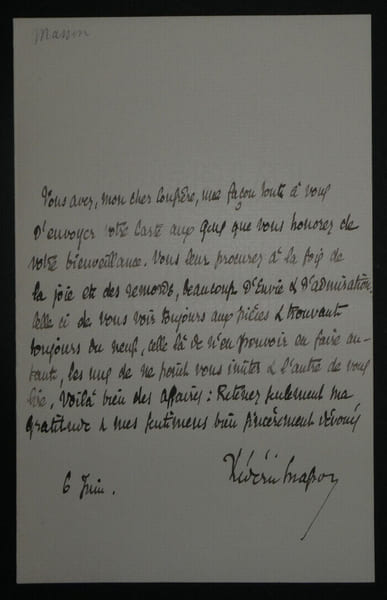 Masson
Vous avez, mon cher Confrère, une façon toute à vous
d'envoyer votre carte aux gens que vous honorez de
votre bienveillance. Vous leur procurez à la fois de
la joie et des remords, beaucoup d'Envie & d'admiration,
celle ci de vous voir toujours aux pièces & trouvant
toujours du neuf, celle là de n'en pouvoir en faire au-
tant, les uns de ne point vous imiter & l'autre de vous
lire, Voilà bien des affaires : Retenez seulement ma
gratitude & mes sentimens bien sincèrement dévoués
6 Juin.
Frédéric Masson